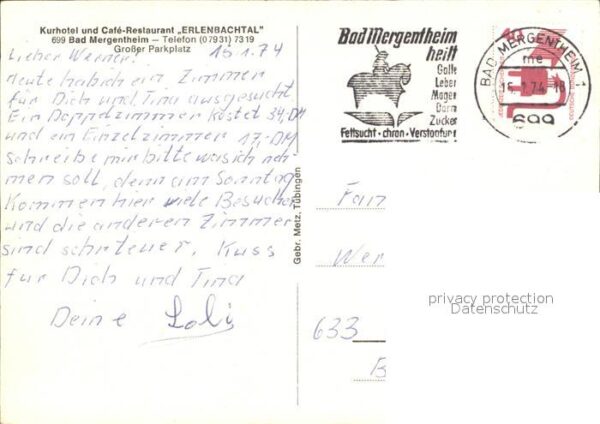 Kurhotel und Café-Restaurant „ERLENBACHTAL"
699 Bad Mergentheim — Telefon (07931) 7319
Großer Parkplatz
15.1.74
Lieber Werner!
Heute hab ich ein Zimmer
für Dich und Tina ausgesucht
Ein Doppelzimmer kostet 34,-DM
und ein Einzelzimmer 17,-DM
Schreibe mir bitte was ich neh-
men soll, denn am Sonntag
kommen hier viele Besucher
und die anderen Zimmer
sind sehr teuer. Kuss
für Dich und Tina
Deine Loli
Gebr. Metz, Tübingen
Bad Mergentheim
heilt
Galle
Leber
Magen
Darm
Zucker
Fettsucht · chron · Verstopfung
BAD MERGENTHEIM 1
me
15.1.74-18
699
Fam
Wer
633
B
privacy protection
Datenschutz